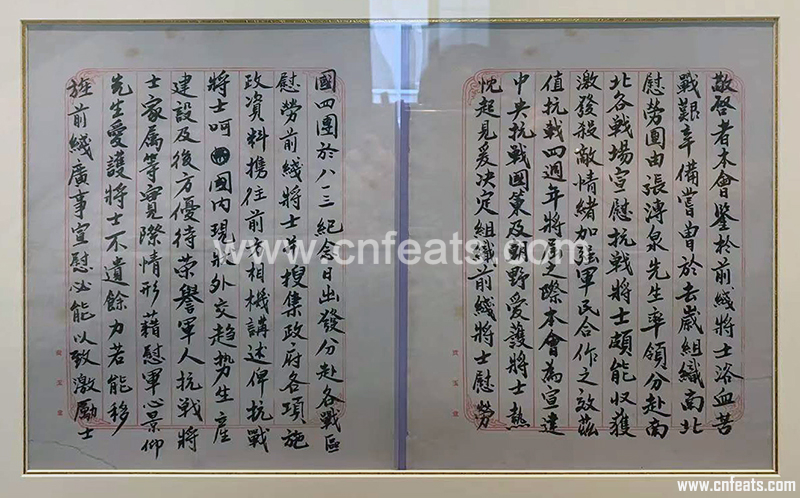 敬啓者本會鑒於前綫將士浴血苦
戰艱辛備嘗曾於去歲組織南北
慰勞團由張溥泉先生率領分赴南
北各戰場宣慰抗戰將士頗能收獲
激發殺敵情緒加强軍民合作之效茲
值抗戰四週年將屆之際本會為宣達
中央抗戰國策及朝野愛護將士熱
忱起見爰決定組織前綫將士慰勞
團四團於八一三紀念日出發分赴各戰區
慰勞前綫將士並搜集政府各項施
政資料携往前方相機講述俾抗戰
將士 國内現狀外交趨勢生產
建設及後方優待榮譽軍人抗戰將
士家属等實際情形藉慰軍心景仰
先生愛護將士不遺餘力若能移
旌前綫廣事宣慰必能以致激勵士
www.cnfeats.com
www.cnfeats.com